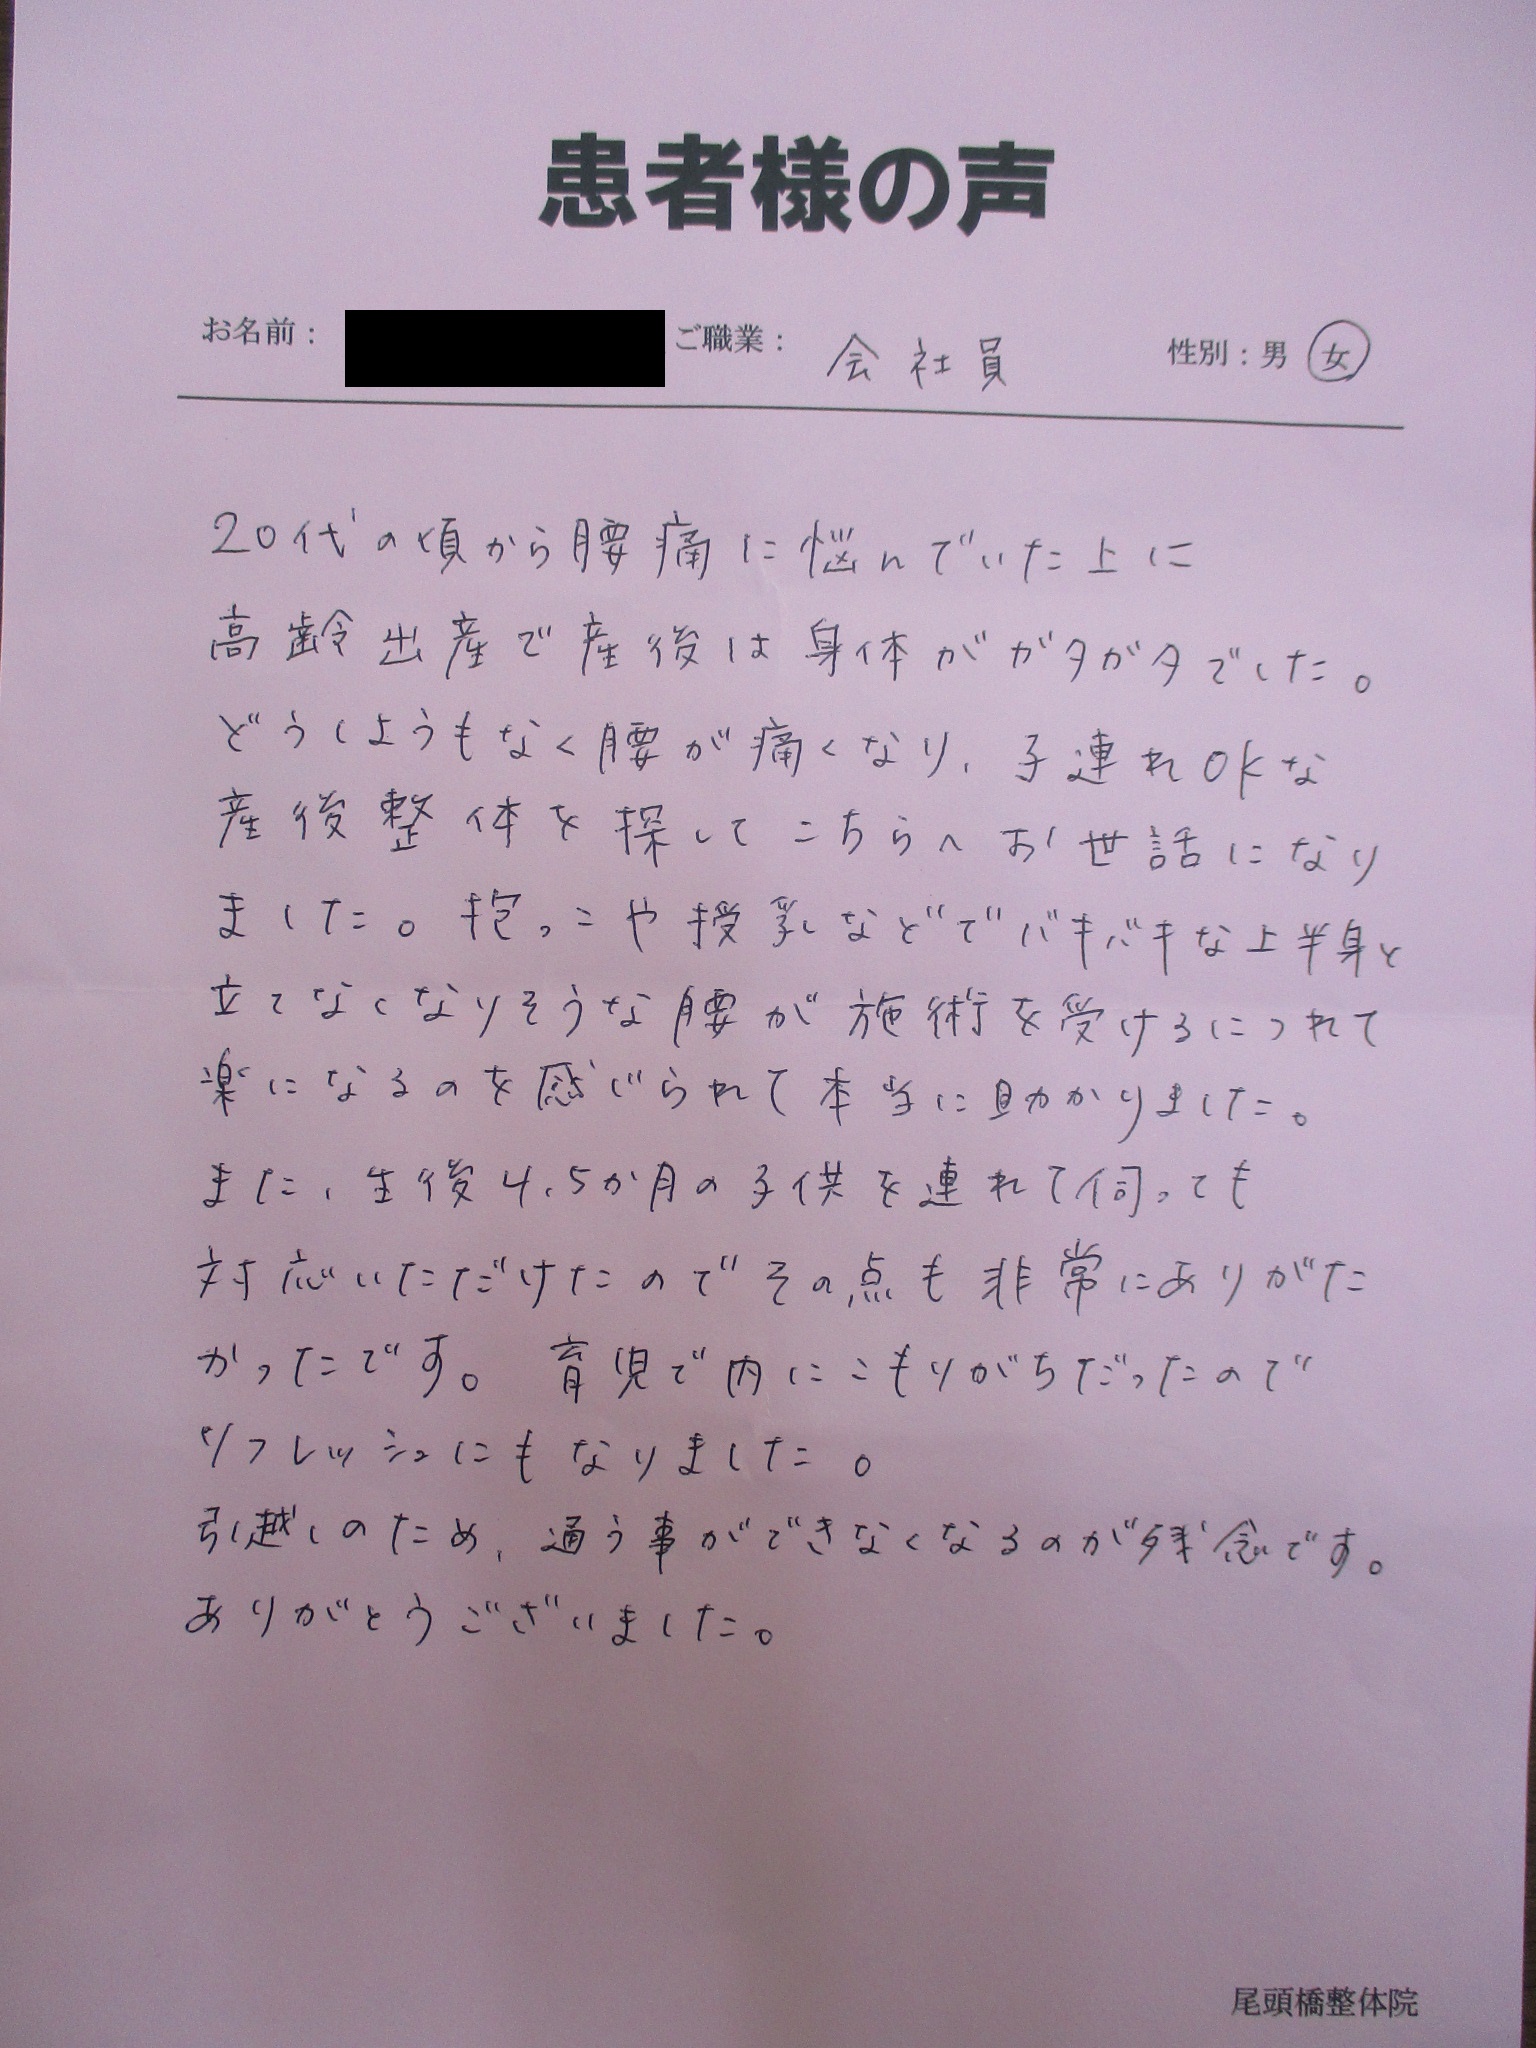 患者様の声
お名前： ご職業： 会社員 性別：男 女
20代の頃から腰痛に悩んでいた上に
高齢出産で産後は身体がガタガタでした。
どうしようもなく腰が痛くなり、子連れOKな
産後整体を探してこちらへお世話になり
ました。抱っこや授乳などでバキバキな上半身と
立てなくなりそうな腰が施術を受けるにつれて
楽になるのを感じられて本当に助かりました。
また、生後4,5か月の子供を連れて伺っても
対応いただけたのでその点も非常にありがた
かったです。育児で内にこもりがちだったので
リフレッシュにもなりました。
引越しのため、通う事ができなくなるのが残念です。
ありがとうございました。
尾頭橋整体院